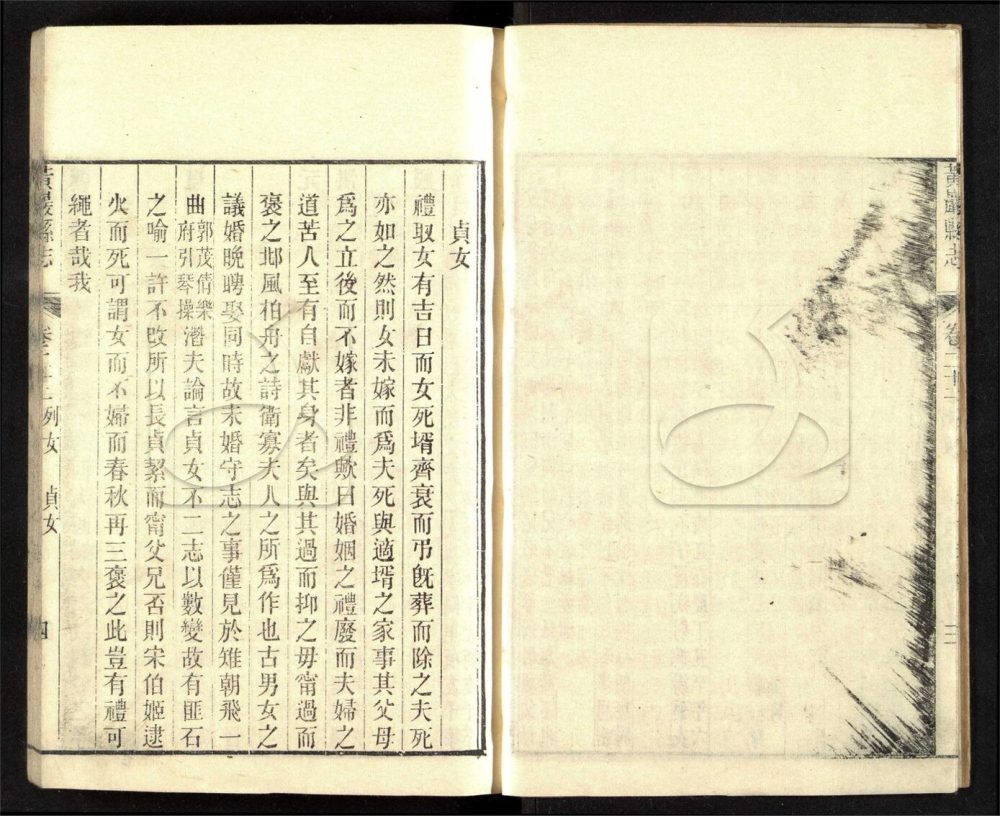 黃巖縣志
卷二十二
貞女
禮取女有吉日而女死壻齊衰而弔旣葬而除之夫死
亦如之然則女未嫁而爲夫死與適壻之家事其父母
爲之立後而不嫁者非禮歟曰婚姻之禮廢而夫婦之
道苦人至有自獻其身者矣與其過而抑之毋甯過而
褒之邶風柏舟之詩衛寡夫人之所爲作也古男女之
議婚晚聘娶同時故未婚守志之事僅見於雉朝飛一
曲郭茂倩樂府引琴操潛夫論言貞女不二志以數變故有匪石
之喻一許不改所以長貞絜而甯父兄否則宋伯姬逮
火而死可謂女而不婦而春秋再三褒之此豈有禮可
繩者哉我
黃巖縣志
卷二十二列女
貞女
四